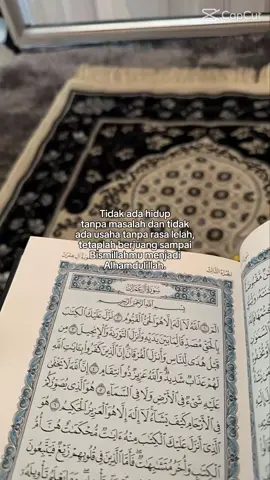 CapCut
Tidak ada hidup
tanpa masalah dan tidak
ada usaha tanpa rasa lelah,
tetaplah berjuang sampai
Bismillahmu menjadi
Alhamdulillah.
سورة آل عمران
بسم الله الرحمن الرحيم
الم الله لا إله إلا هو الحي القيوم نزل عليك الكتاب
بالحق مصدقا لما بين يديه وأنزل التوراة والإنجيل من
قبل هدى للناس وأنزل الفرقان إن الذين كفروا بآيات الله
لهم عذاب شديد والله عزيز ذو انتقام إن الله لا يخفى
عليه شيء في الأرض ولا في السماء هو الذي يصوركم
في الأرحام كيف يشاء لا إله إلا هو العزيز الحكيم هو
الذي أنزل عليك الكتاب منه آيات محكمات هن أم
الكتاب وأخر متشابهات فأما الذين في قلوبهم زيغ فيتبعون